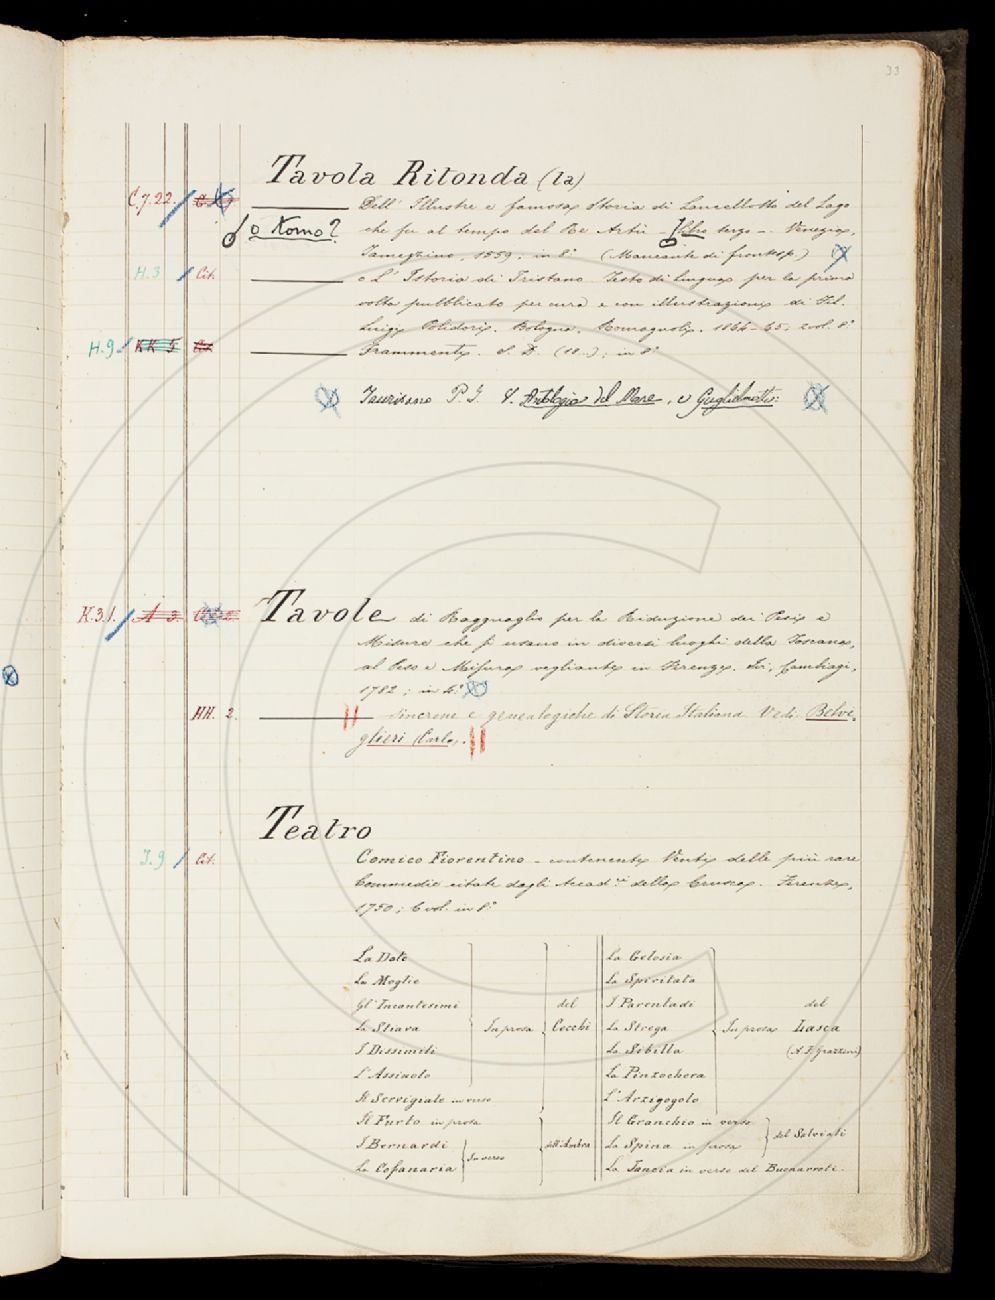 33
Tavola Ritonda (la)
C.7.22.
Dell' Illustre e famosa Storia di Lancellotto del Lago
o Tomo?
che fu al tempo del Re Artù - Libro terzo - Venezia,
Tramezzino, 1559, in 8° (Mancante di frontesp.)
H.3 Cit.
o L' Istoria di Tristano. Testo di lingua per la prima
volta pubblicato per cura e con illustrazioni di Fil.
Luigi Polidori. Bologna, Romagnoli, 1864-65; 2 vol. 8°
H.9. KK 5
Frammenti. S. D. (18..); in 8°
Taurisano P. I. V. Antologia del Mare, e Guglielmotti:
K.3.1. A 3.
Tavole di Ragguaglio per la Riduzione dei Pesi e
Misure che si usano in diversi luoghi della Toscana,
al Peso e Misura vegliante in Firenze. Ivi, Cambiagi,
1782; in 4°
HH. 2.
sincrone e genealogiche di Storia Italiana Vedi Belvi-
glieri (Carlo).
Teatro
I.9 Cit.
Comico Fiorentino - contenente Venti delle più rare
Commedie citate dagli Accad.ci della Crusca. Firenze,
1750; 6 vol. in 8°
La Dote La Gelosia
La Moglie La Spiritata
Gl' Incantesimi del I Parentadi del
La Stiava In prosa Cecchi La Strega In prosa Lasca
I Dissimili La Sibilla (A. F. Grazzini)
L'Assiuolo La Pinzochera
Il Servigiale in verso L'Arzigogolo
Il Furto in prosa Il Granchio in verso
I Bernardi dell'Ambra La Spina in prosa del Salviati
La Cofanaria In verso La Tancia in verso del Buonarroti.